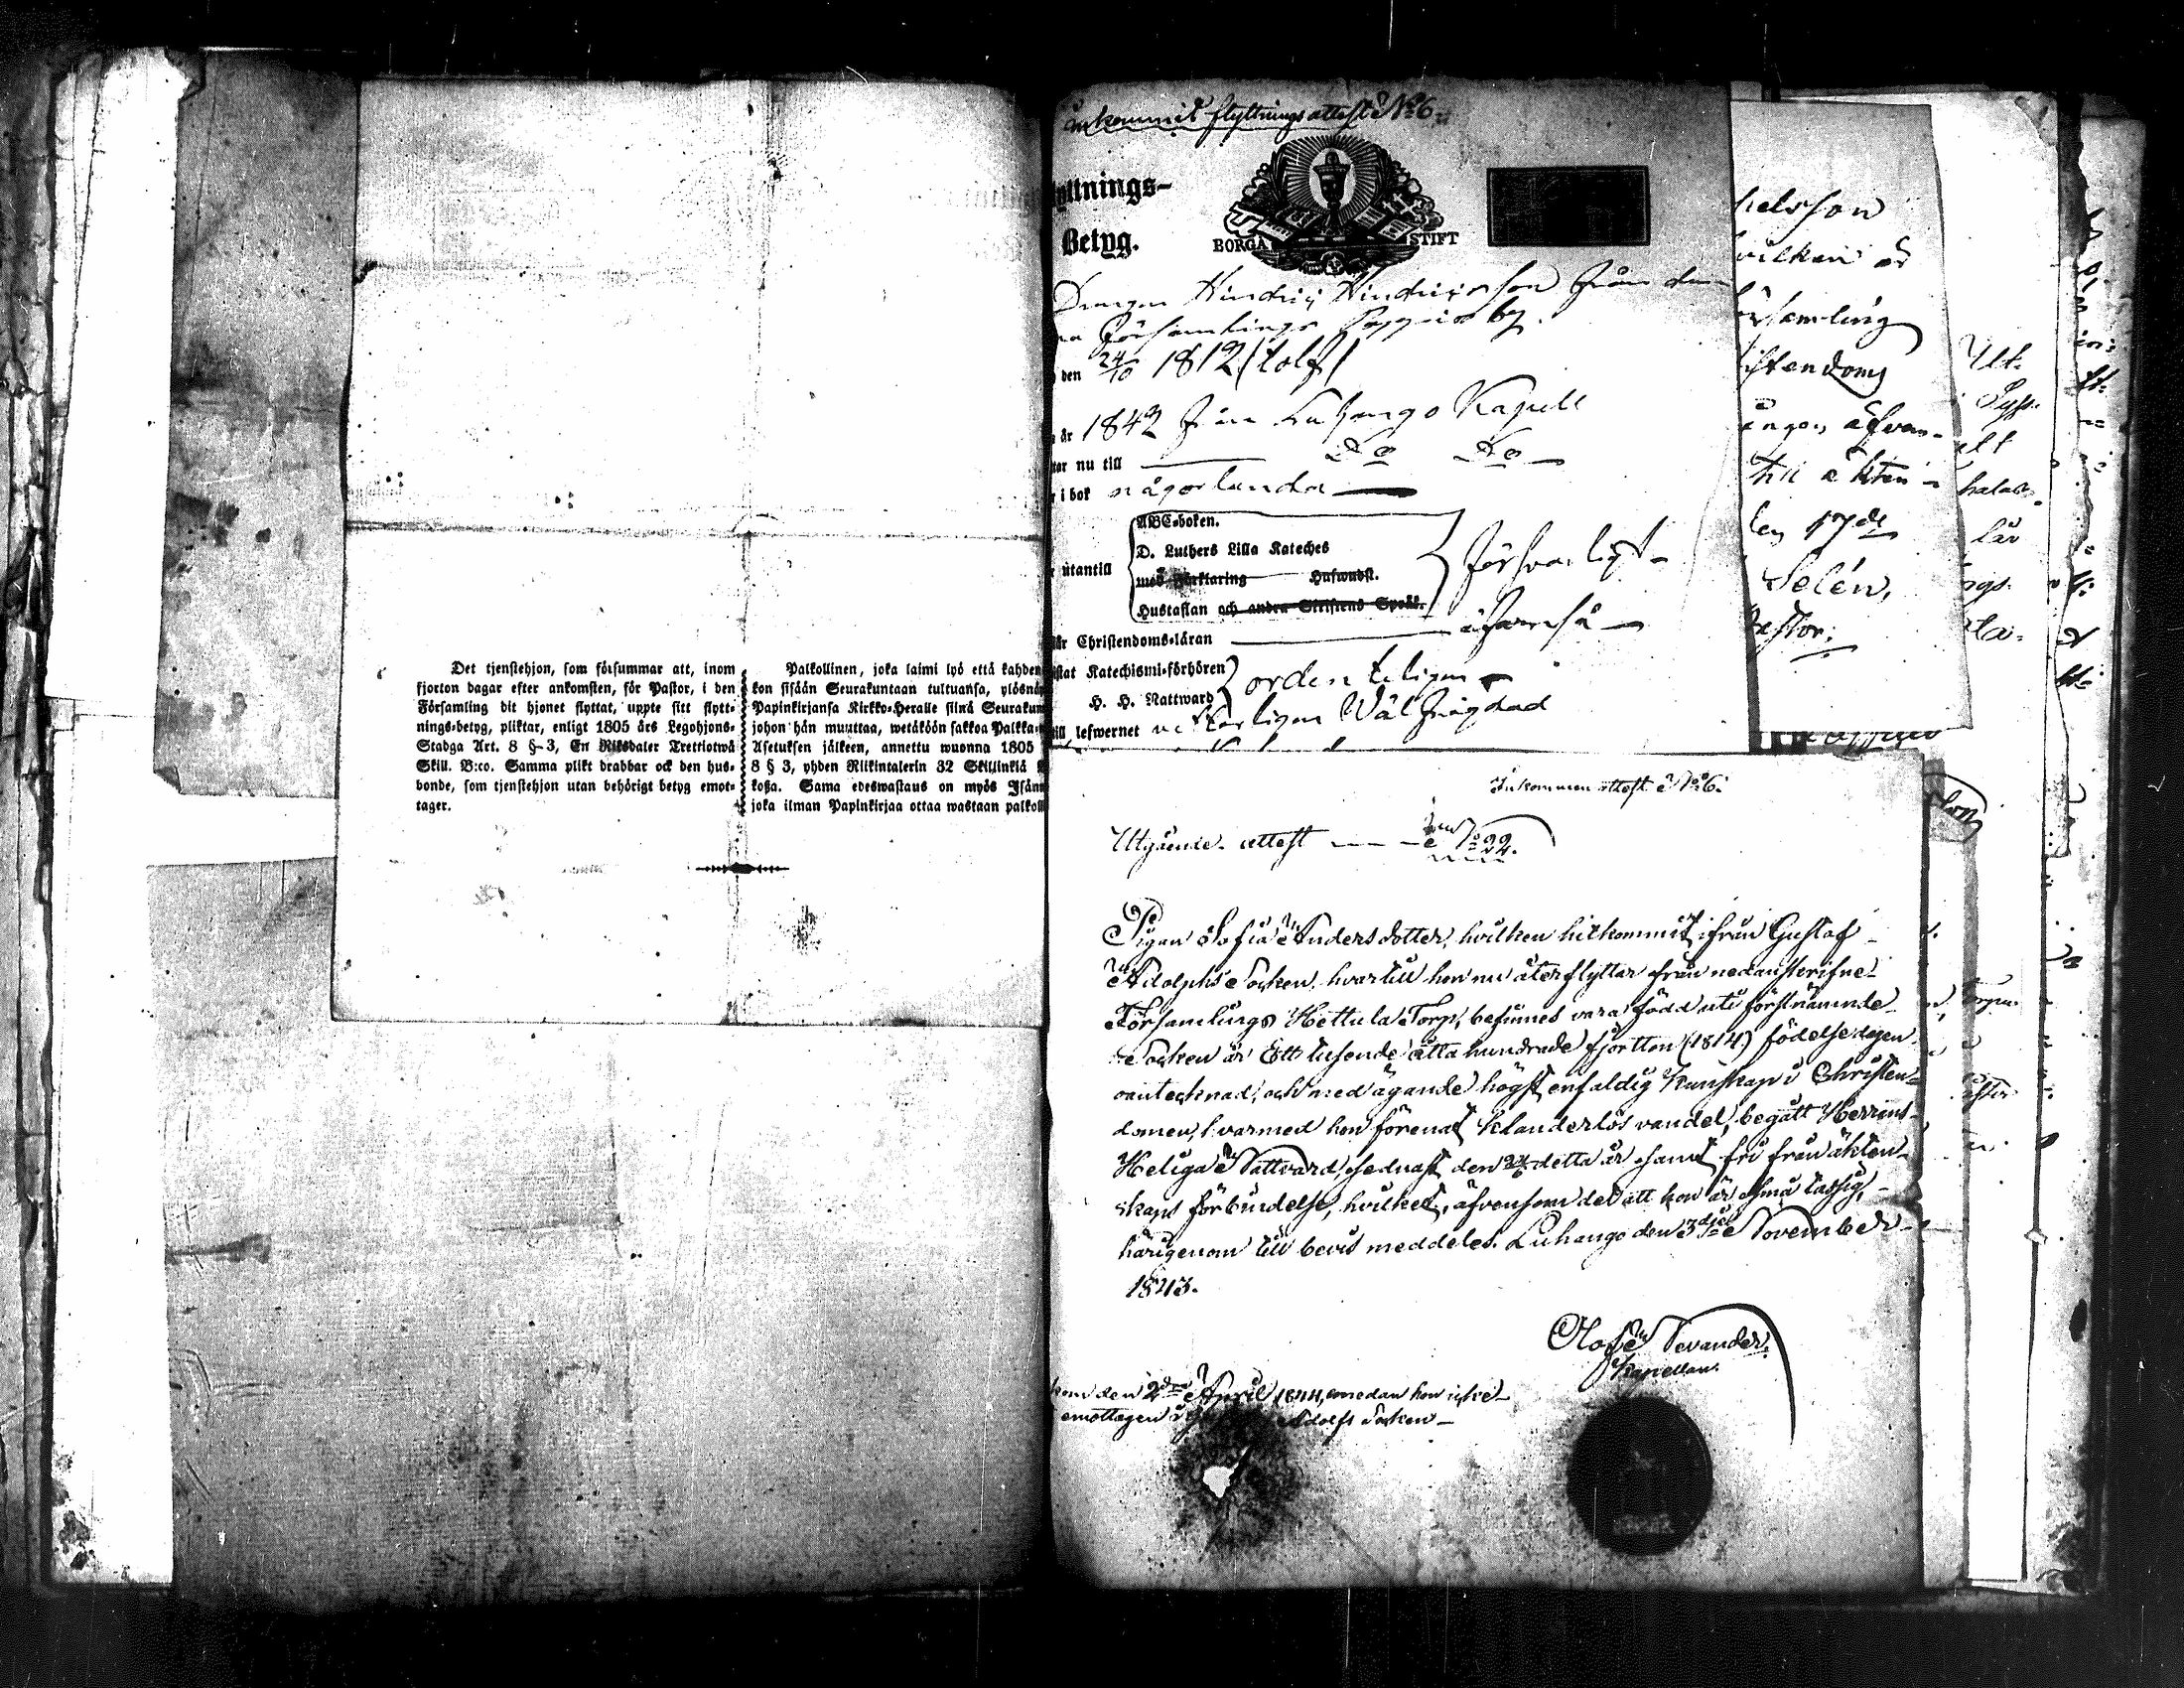 Det tjenstehjon, som försummar att, inom
fjorton dagar efter ankomsten, för Pastor, i den
Församling dit hjonet flyttat, uppte sitt flytt-
nings-betyg, pliktar, enligt 1805 års Legohjons-
Stadga Art. 8 § 3, En Riksdaler Trettiotwå
Skill. B:co. Samma plikt drabbar ock den hus-
bonde, som tjenstehjon utan behörigt betyg emot-
tager.
Palkollinen, joka laimi lyö että kahden
kon sisään Seurakuntaan tultuansa, ylösnä
Papinkirjansa Kirkko-Heralle siinä Seurakun
johon hän muuttaa, wetäköön sakkoa Palkka-
Asetuksen jälkeen, annettu wuonna 1805
8 § 3, yhden Riikintalerin 32 Skillinkiä
koßa. Sama edeswastaus on myös Isän
joka ilman Papinkirjaa ottaa wastaan palkoll
inkommit flyttnings attest No 6.
yttnings-
Betyg.
BORGÅ STIFT
Drengen Hindric Hindricsson från den
na Församlings by.
den 24/10 1812 (tolf)
år 1842 från Luhango Kapell
tar nu till — Do Do —
r i bok någorlunda —
ABC-boken.
D. Luthers Lilla Kateches
med Förklaring Husandst.
Hustaflan och andra Skriftens Språk.
r utantill
försvarligt —
år Christendoms-läran — äfvenså —
istat Katechismi-förhören
H. H. Nattward
ordenteligen
till lefwernet Wälfrägdad
helsson
hvilken är
örsamling
istendoms
ången, äfven-
till äkten-
den 17de
Selén,
Pastor.
Inkommen attest No 6.
Utgående attest — No 22.
Pigan Sofia Andersdotter, hvilken hitkommit ifrån Gustaf
Adolphs Socken, hvartill hon nu återflyttar från nedanskrifne
Församlings Hettula Torp, befinnes vara född uti förstnämnde
Socken år Ett tusende åtta hundrade fjortton (1814) födelsedagen
oantecknad, och med ägande högst enfaldig kunskap i Christen-
domen, hvarmed hon förenat klanderlös vandel, begått Herrans
Heliga Nattvard sednast den detta år samt fri från äkten-
skaps förbindelse, hvilket, äfvensom det att hon är
härigenom till bevis meddeles. Luhango den 3dje November
1843.
Olof Nevander.
Kapellan.
kom den 2dra April 1844, emedan hon icke
emottagen i Adolfs Socken —